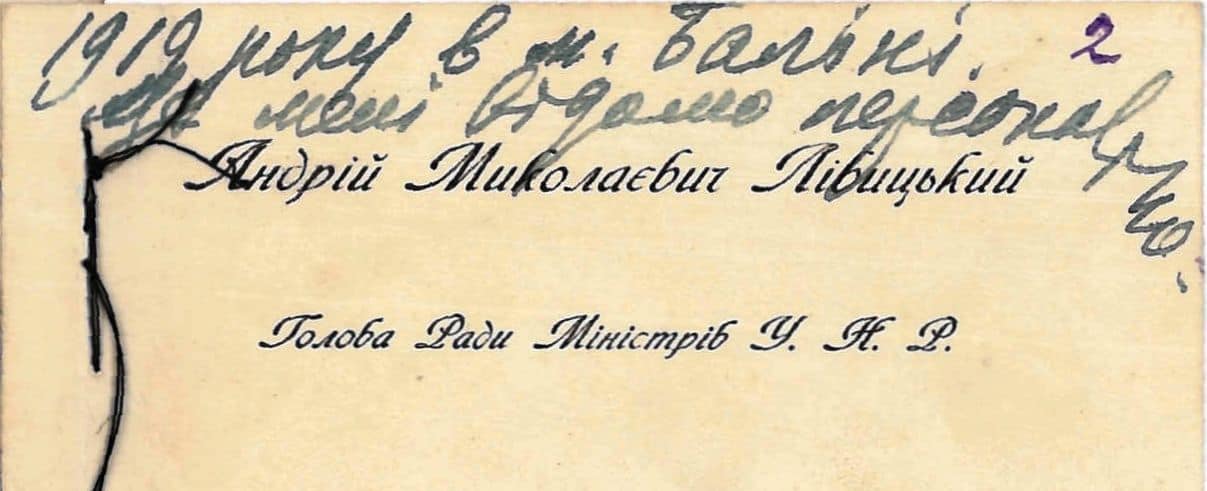 1919 року в м. Балині. 2
Це мені відомо персонально.
Андрій Миколаєвич Лівицький
Голова Ради Міністрів У. Н. Р.